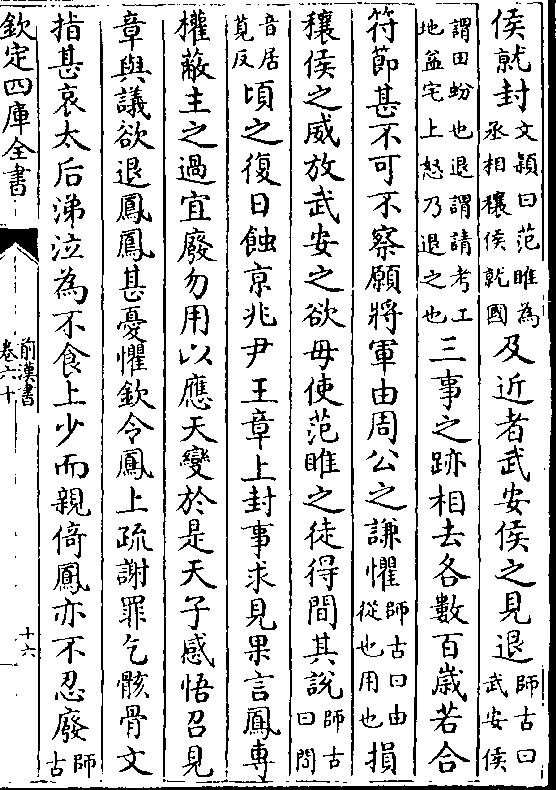 侯就封文穎曰范雎為丞相穰侯就國及近者武安侯之見退師古曰武安侯
謂田蚡也退謂請考工地益宅上怒乃退之也三事之跡相去各數百歲若合
符節甚不可不察願將軍由周公之謙懼師古曰由從也用也損
穰侯之威放武安之欲毋使范雎之徒得間其說師古曰間
音居莧反頃之復日蝕京兆尹王章上封事求見果言鳳專
權蔽主之過宜廢勿用以應天變於是天子感悟召見
章與議欲退鳳鳳甚憂懼欽令鳳上疏謝罪乞骸骨文
指甚哀太后涕泣為不食上少而親倚鳳亦不忍廢師古
欽定四庫全書
前漢書
卷六十
十六